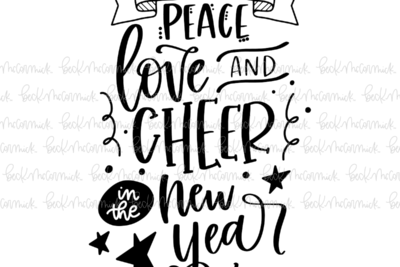 PEACE
love AND
CHEER
in the new
year